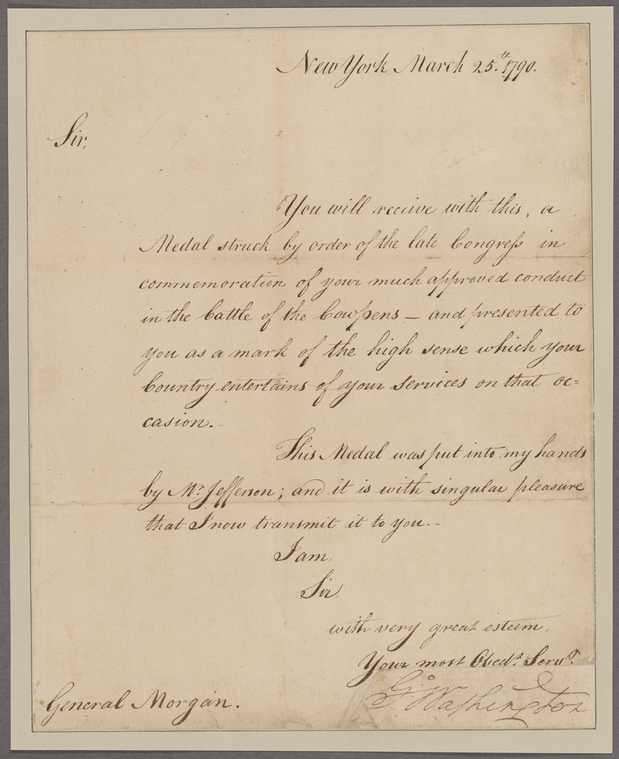 New York March 25.th 1790.
Sir,
You will receive with this, a
Medal struck by order of the late Congress in
commemoration of your much approved conduct
in the battle of the Cowpens — and presented to
you as a mark of the high sense which your
Country entertains of your services on that oc=
casion.—
This Medal was put into my hands
by Mr. Jefferson; and it is with singular pleasure
that I now transmit it to you.—
I am,
Sir,
with very great esteem,
Your most Obedt. Servt.
Go. Washington
General Morgan.